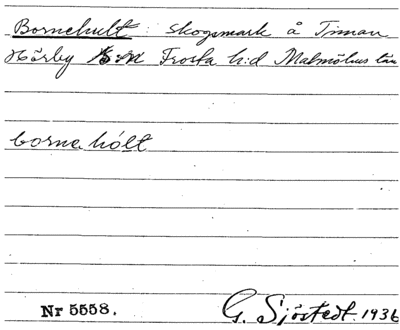 Bornehult: skogsmark å Timan
Hörby s:n Frosta h:d Malmöhus län
borne hólt
Nr 5558.
G. Sjöstedt. 1936